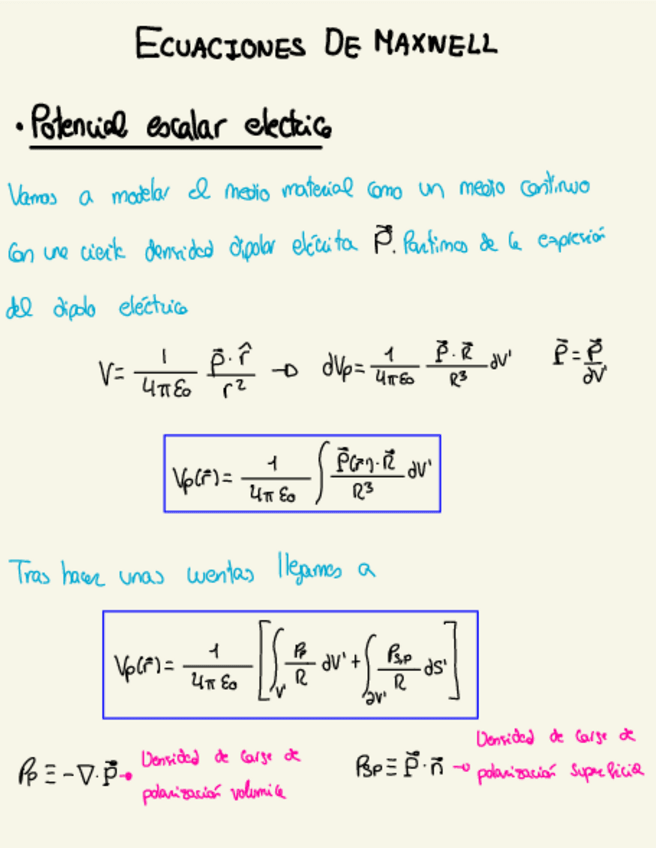 ECUACIONES DE MAXWELL
• Potencial escalar electrico
Vamos a modelar el medio material como un medio continuo
con una cierta densidad dipolar eléctrica P⃗. Partimos de la expresión
del dipolo eléctrico
V = 1/(4πε₀) (p⃗·r̂)/r² → dVp = 1/(4πε₀) (P⃗·R⃗)/R³ dV' P⃗ = p⃗/dV'
Vp(r⃗) = 1/(4πε₀) ∫ (P⃗(r⃗')·R⃗)/R³ dV'
Tras hacer unas cuentas llegamos a
Vp(r⃗) = 1/(4πε₀) [∫_V' ρp/R dV' + ∫_∂V' ρs,p/R ds']
ρp ≡ -∇·P⃗ → Densidad de carga de
polarización volumica
ρsp ≡ P⃗·n⃗ → Densidad de carga de
polarización superficial